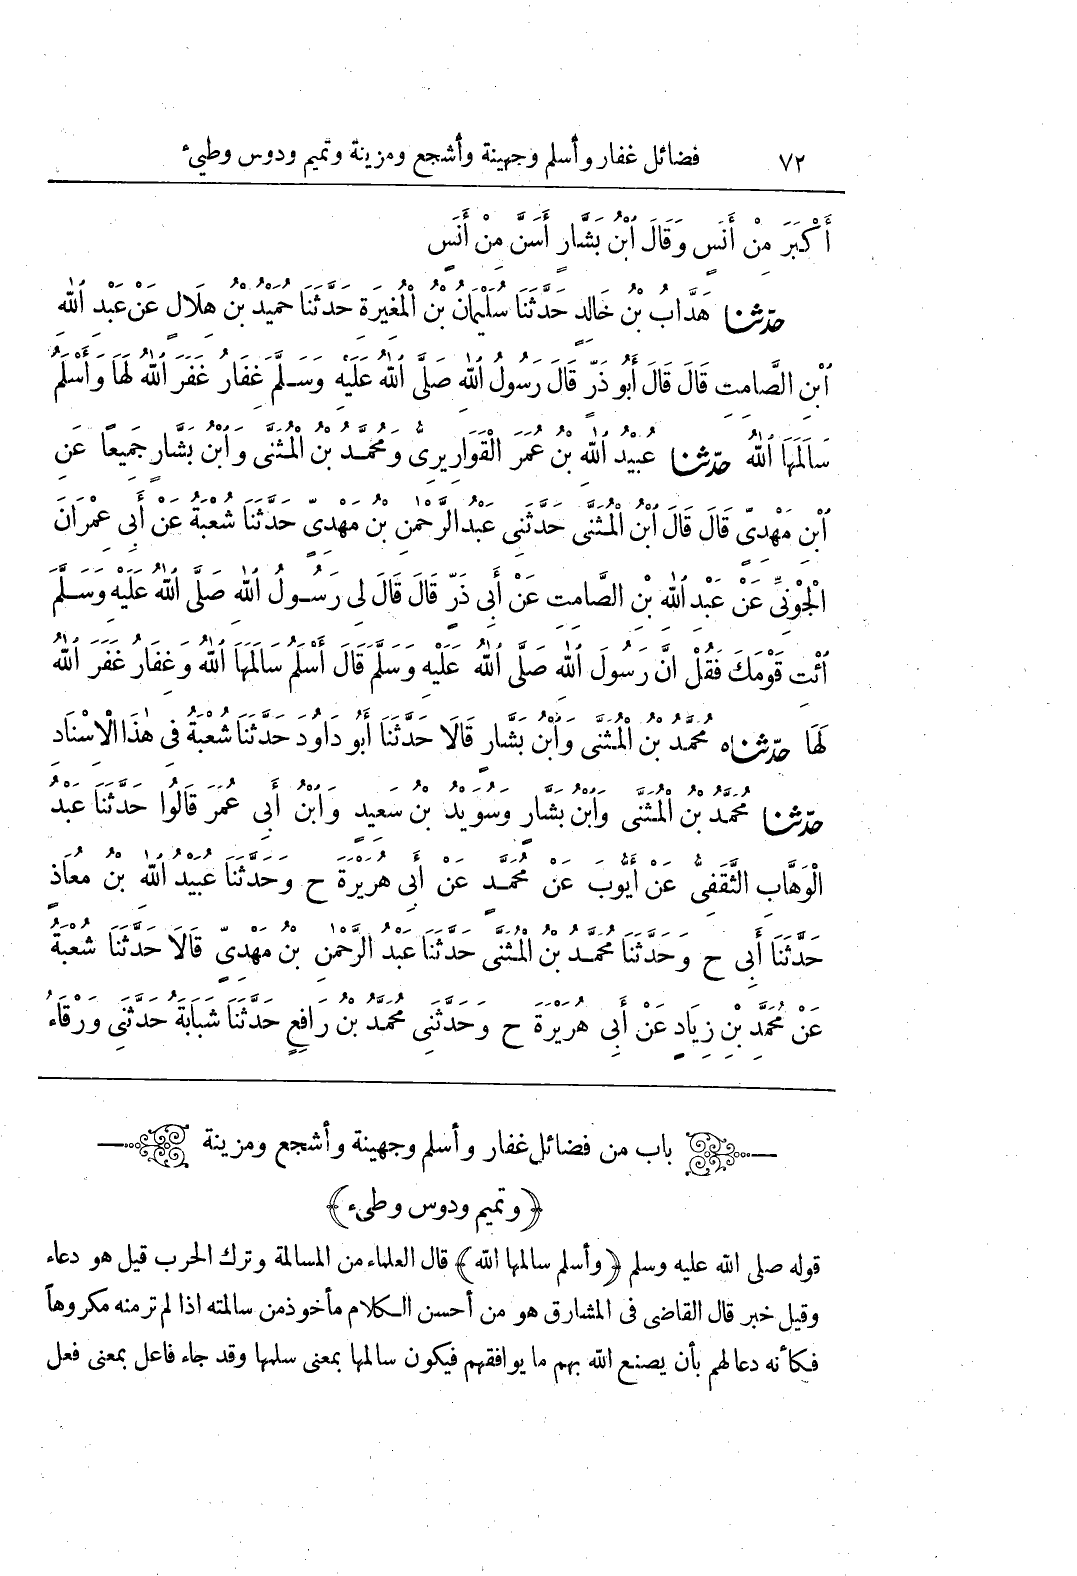 ٧٢ فضائل غفار وأسلم وجهينة وأشجع ومزينة وتميم ودوس وطيء
أَكْبَرَ مِنْ أَنَسٍ وَقَالَ ٱبْنُ بَشَّارٍ أَسَنَّ مِنْ أَنَسٍ
حدّثنا هَدَّابُ بْنُ خَالِدٍ حَدَّثَنَا سُلَيْمَانُ بْنُ الْمُغِيرَةِ حَدَّثَنَا حُمَيْدُ بْنُ هِلَالٍ عَنْ عَبْدِ ٱللهِ
ٱبْنِ الصَّامِتِ قَالَ قَالَ أَبُو ذَرٍّ قَالَ رَسُولُ ٱللهِ صَلَّى ٱللهُ عَلَيْهِ وَسَلَّمَ غِفَارُ غَفَرَ ٱللهُ لَهَا وَأَسْلَمُ
سَالَمَهَا ٱللهُ حدّثنا عُبَيْدُ ٱللهِ بْنُ عُمَرَ الْقَوَارِيرِىُّ وَمُحَمَّدُ بْنُ الْمُثَنَّى وَٱبْنُ بَشَّارٍ جَمِيعًا عَنِ
ٱبْنِ مَهْدِىٍّ قَالَ قَالَ ٱبْنُ الْمُثَنَّى حَدَّثَنِى عَبْدُ الرَّحْمٰنِ بْنُ مَهْدِىٍّ حَدَّثَنَا شُعْبَةُ عَنْ أَبِى عِمْرَانَ
الْجَوْنِىِّ عَنْ عَبْدِ ٱللهِ بْنِ الصَّامِتِ عَنْ أَبِى ذَرٍّ قَالَ قَالَ لِى رَسُولُ ٱللهِ صَلَّى ٱللهُ عَلَيْهِ وَسَلَّمَ
ٱئْتِ قَوْمَكَ فَقُلْ انَّ رَسُولَ ٱللهِ صَلَّى ٱللهُ عَلَيْهِ وَسَلَّمَ قَالَ أَسْلَمُ سَالَمَهَا ٱللهُ وَغِفَارُ غَفَرَ ٱللهُ
لَهَا حدّثناه مُحَمَّدُ بْنُ الْمُثَنَّى وَٱبْنُ بَشَّارٍ قَالَا حَدَّثَنَا أَبُو دَاوُدَ حَدَّثَنَا شُعْبَةُ فِى هٰذَا الْاِسْنَادِ
حدّثنا مُحَمَّدُ بْنُ الْمُثَنَّى وَٱبْنُ بَشَّارٍ وَسُوَيْدُ بْنُ سَعِيدٍ وَٱبْنُ أَبِى عُمَرَ قَالُوا حَدَّثَنَا عَبْدُ
الْوَهَّابِ الثَّقَفِىُّ عَنْ أَيُّوبَ عَنْ مُحَمَّدٍ عَنْ أَبِى هُرَيْرَةَ ح وَحَدَّثَنَا عُبَيْدُ ٱللهِ بْنُ مُعَاذٍ
حَدَّثَنَا أَبِى ح وَحَدَّثَنَا مُحَمَّدُ بْنُ الْمُثَنَّى حَدَّثَنَا عَبْدُ الرَّحْمٰنِ بْنُ مَهْدِىٍّ قَالَا حَدَّثَنَا شُعْبَةُ
عَنْ مُحَمَّدِ بْنِ زِيَادٍ عَنْ أَبِى هُرَيْرَةَ ح وَحَدَّثَنِى مُحَمَّدُ بْنُ رَافِعٍ حَدَّثَنَا شَبَابَةُ حَدَّثَنِى وَرْقَاءُ
باب من فضائل غفار وأسلم وجهينة وأشجع ومزينة
﴿وتميم ودوس وطىء﴾
قوله صلى الله عليه وسلم ﴿وأسلم سالمها الله﴾ قال العلماء من المسالمة وترك الحرب قيل هو دعاء
وقيل خبر قال القاضى فى المشارق هو من أحسن الكلام مأخوذ من سالمته اذا لم ترمنه مكروهاً
فكأنه دعا لهم بأن يصنع الله بهم ما يوافقهم فيكون سالمها بمعنى سلمها وقد جاء فاعل بمعنى فعل